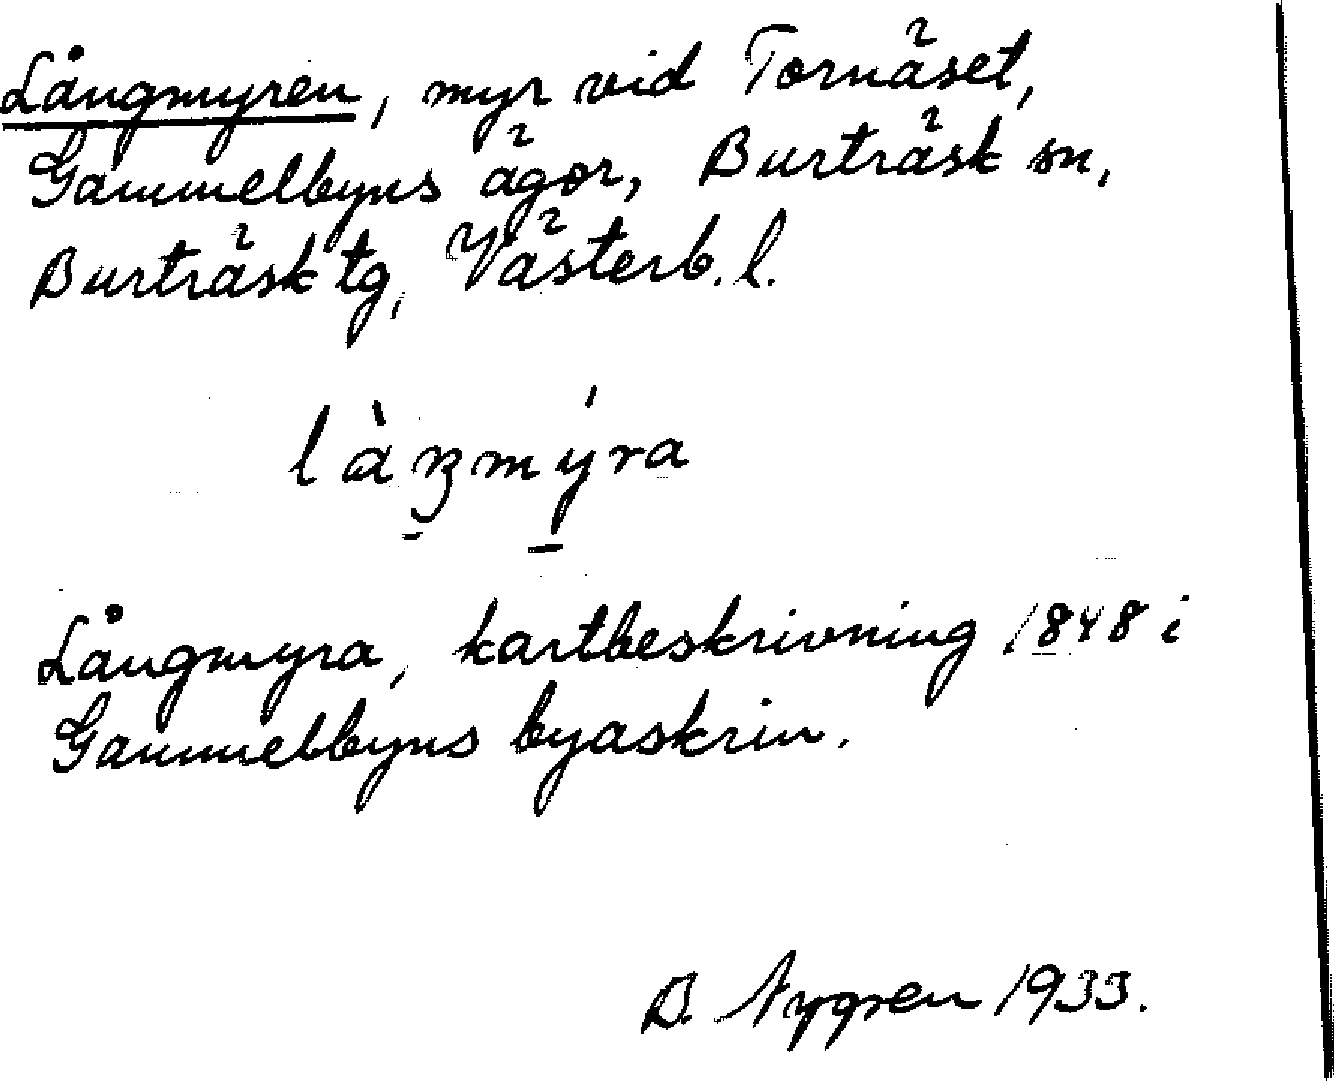 Långmyren, myr vid Tornäset,
Gammelbyns ägor, Burträsk sn,
Burträsk tg, Västerb. l.
làŋmýra
Långmyra, kartbeskrivning 1848 i
Gammelbyns byaskrin.
B. Nygren 1933.